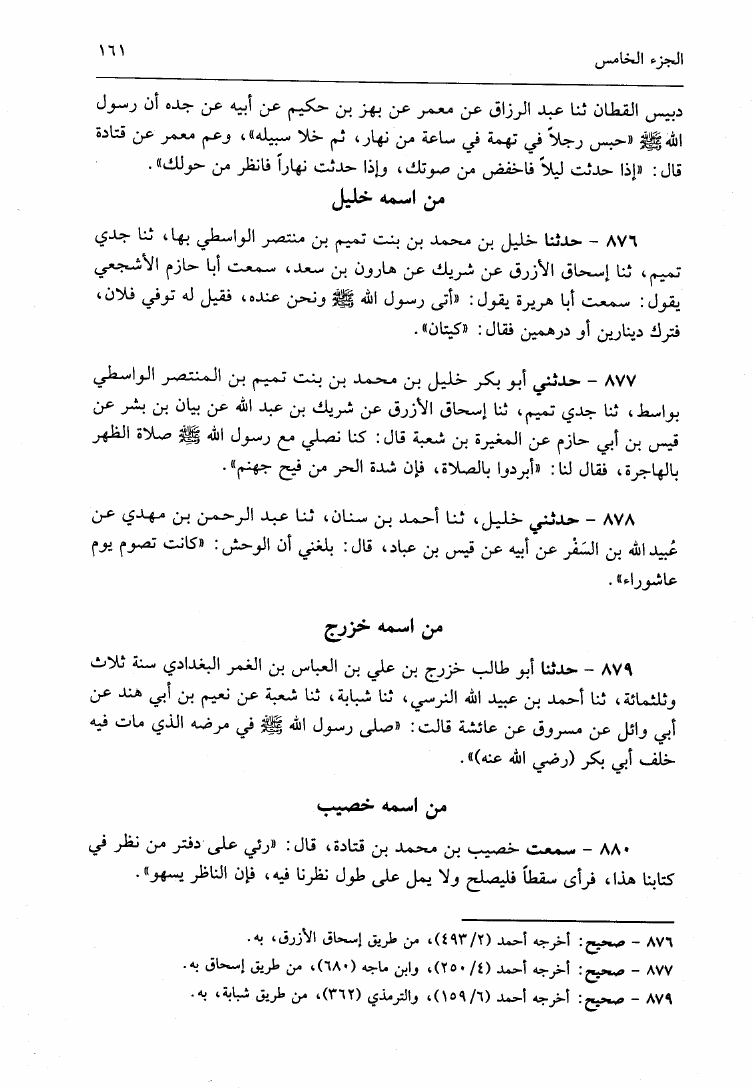 الجزء الخامس
١٦١
دبيس القطان ثنا عبد الرزاق عن معمر عن بهز بن حكيم عن أبيه عن جده أن رسول
الله ﷺ «حبس رجلاً في تهمة في ساعة من نهار، ثم خلا سبيله»، وعم معمر عن قتادة
قال: «إذا حدثت ليلاً فاخفض من صوتك، وإذا حدثت نهاراً فانظر من حولك».
من اسمه خليل
٨٧٦ - حدثنا خليل بن محمد بن بنت تميم بن منتصر الواسطي بها، ثنا جدي
تميم، ثنا إسحاق الأزرق عن شريك عن هارون بن سعد، سمعت أبا حازم الأشجعي
يقول: سمعت أبا هريرة يقول: «أتى رسول الله ﷺ ونحن عنده، فقيل له توفي فلان،
فترك دينارين أو درهمين فقال: «كيتان».
٨٧٧ - حدثني أبو بكر خليل بن محمد بن بنت تميم بن المنتصر الواسطي
بواسط، ثنا جدي تميم، ثنا إسحاق الأزرق عن شريك بن عبد الله عن بيان بن بشر عن
قيس بن أبي حازم عن المغيرة بن شعبة قال: كنا نصلي مع رسول الله ﷺ صلاة الظهر
بالهاجرة، فقال لنا: «أبردوا بالصلاة، فإن شدة الحر من فيح جهنم».
٨٧٨ - حدثني خليل، ثنا أحمد بن سنان، ثنا عبد الرحمن بن مهدي عن
عُبيد الله بن السَفْر عن أبيه عن قيس بن عباد، قال: بلغني أن الوحش: «كانت تصوم يوم
عاشوراء».
من اسمه خزرج
٨٧٩ - حدثنا أبو طالب خزرج بن علي بن العباس بن الغمر البغدادي سنة ثلاث
وثلثمائة، ثنا أحمد بن عبيد الله النرسي، ثنا شبابة، ثنا شعبة عن نعيم بن أبي هند عن
أبي وائل عن مسروق عن عائشة قالت: «صلى رسول الله ﷺ في مرضه الذي مات فيه
خلف أبي بكر (رضي الله عنه)».
من اسمه خصيب
٨٨٠ - سمعت خصيب بن محمد بن قتادة، قال: «رئي على دفتر من نظر في
كتابنا هذا، فرأى سقطاً فليصلح ولا يمل على طول نظرنا فيه، فإن الناظر يسهو».
٨٧٦ - صحيح: أخرجه أحمد (٢/ ٤٩٣)، من طريق إسحاق الأزرق، به.
٨٧٧ - صحيح: أخرجه أحمد (٤/ ٢٥٠)، وابن ماجه (٦٨٠)، من طريق إسحاق به.
٨٧٩ - صحيح: أخرجه أحمد (٦/ ١٥٩)، والترمذي (٣٦٢)، من طريق شبابة، به.